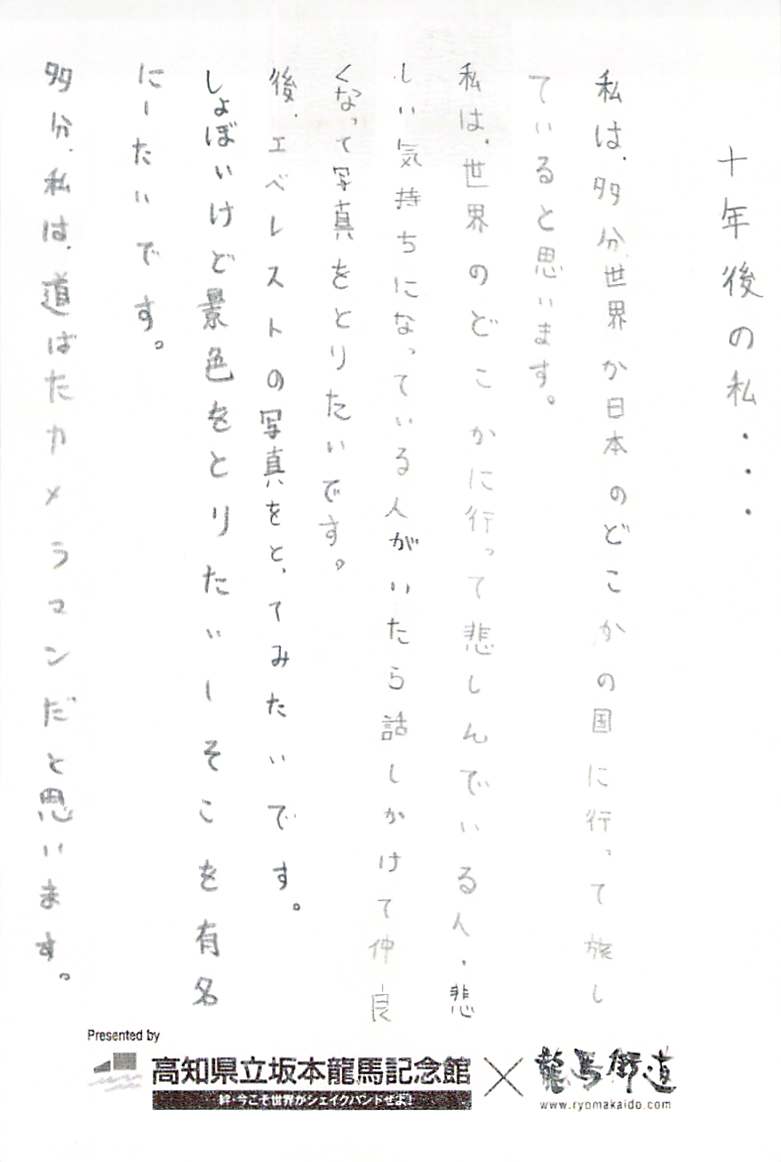 十年後の私・・・
私は、多分世界か日本のどこかの国に行って旅し
ていると思います。
私は、世界のどこかに行って悲しんでいる人、悲
しい気持ちになっている人がいたら話しかけて仲良
くなって写真をとりたいです。
後、エベレストの写真をとってみたいです。
しょぼいけど景色をとりたいしそこを有名
にしたいです。
多分、私は、道ばたカメラマンだと思います。
Presented by
高知県立坂本龍馬記念館×龍馬街道
絆・今こそ世界がシェイクハンドぜよ!
www.ryomakaido.com